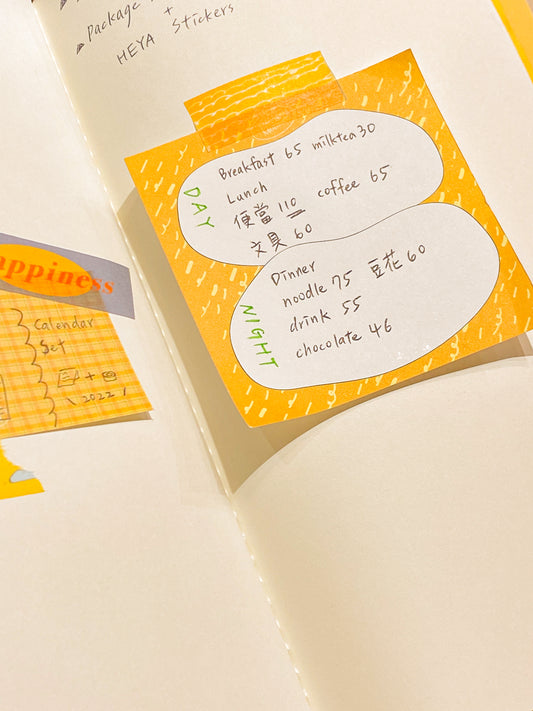 Package
+
HEYA Stickers
DAY
Breakfast 65 milktea 30
Lunch
便當 110 coffee 65
文具 60
NIGHT
Dinner
noodle 75 豆花 60
drink 55
chocolate 46
appiness
Calendar
Set
+
\ 2022 /